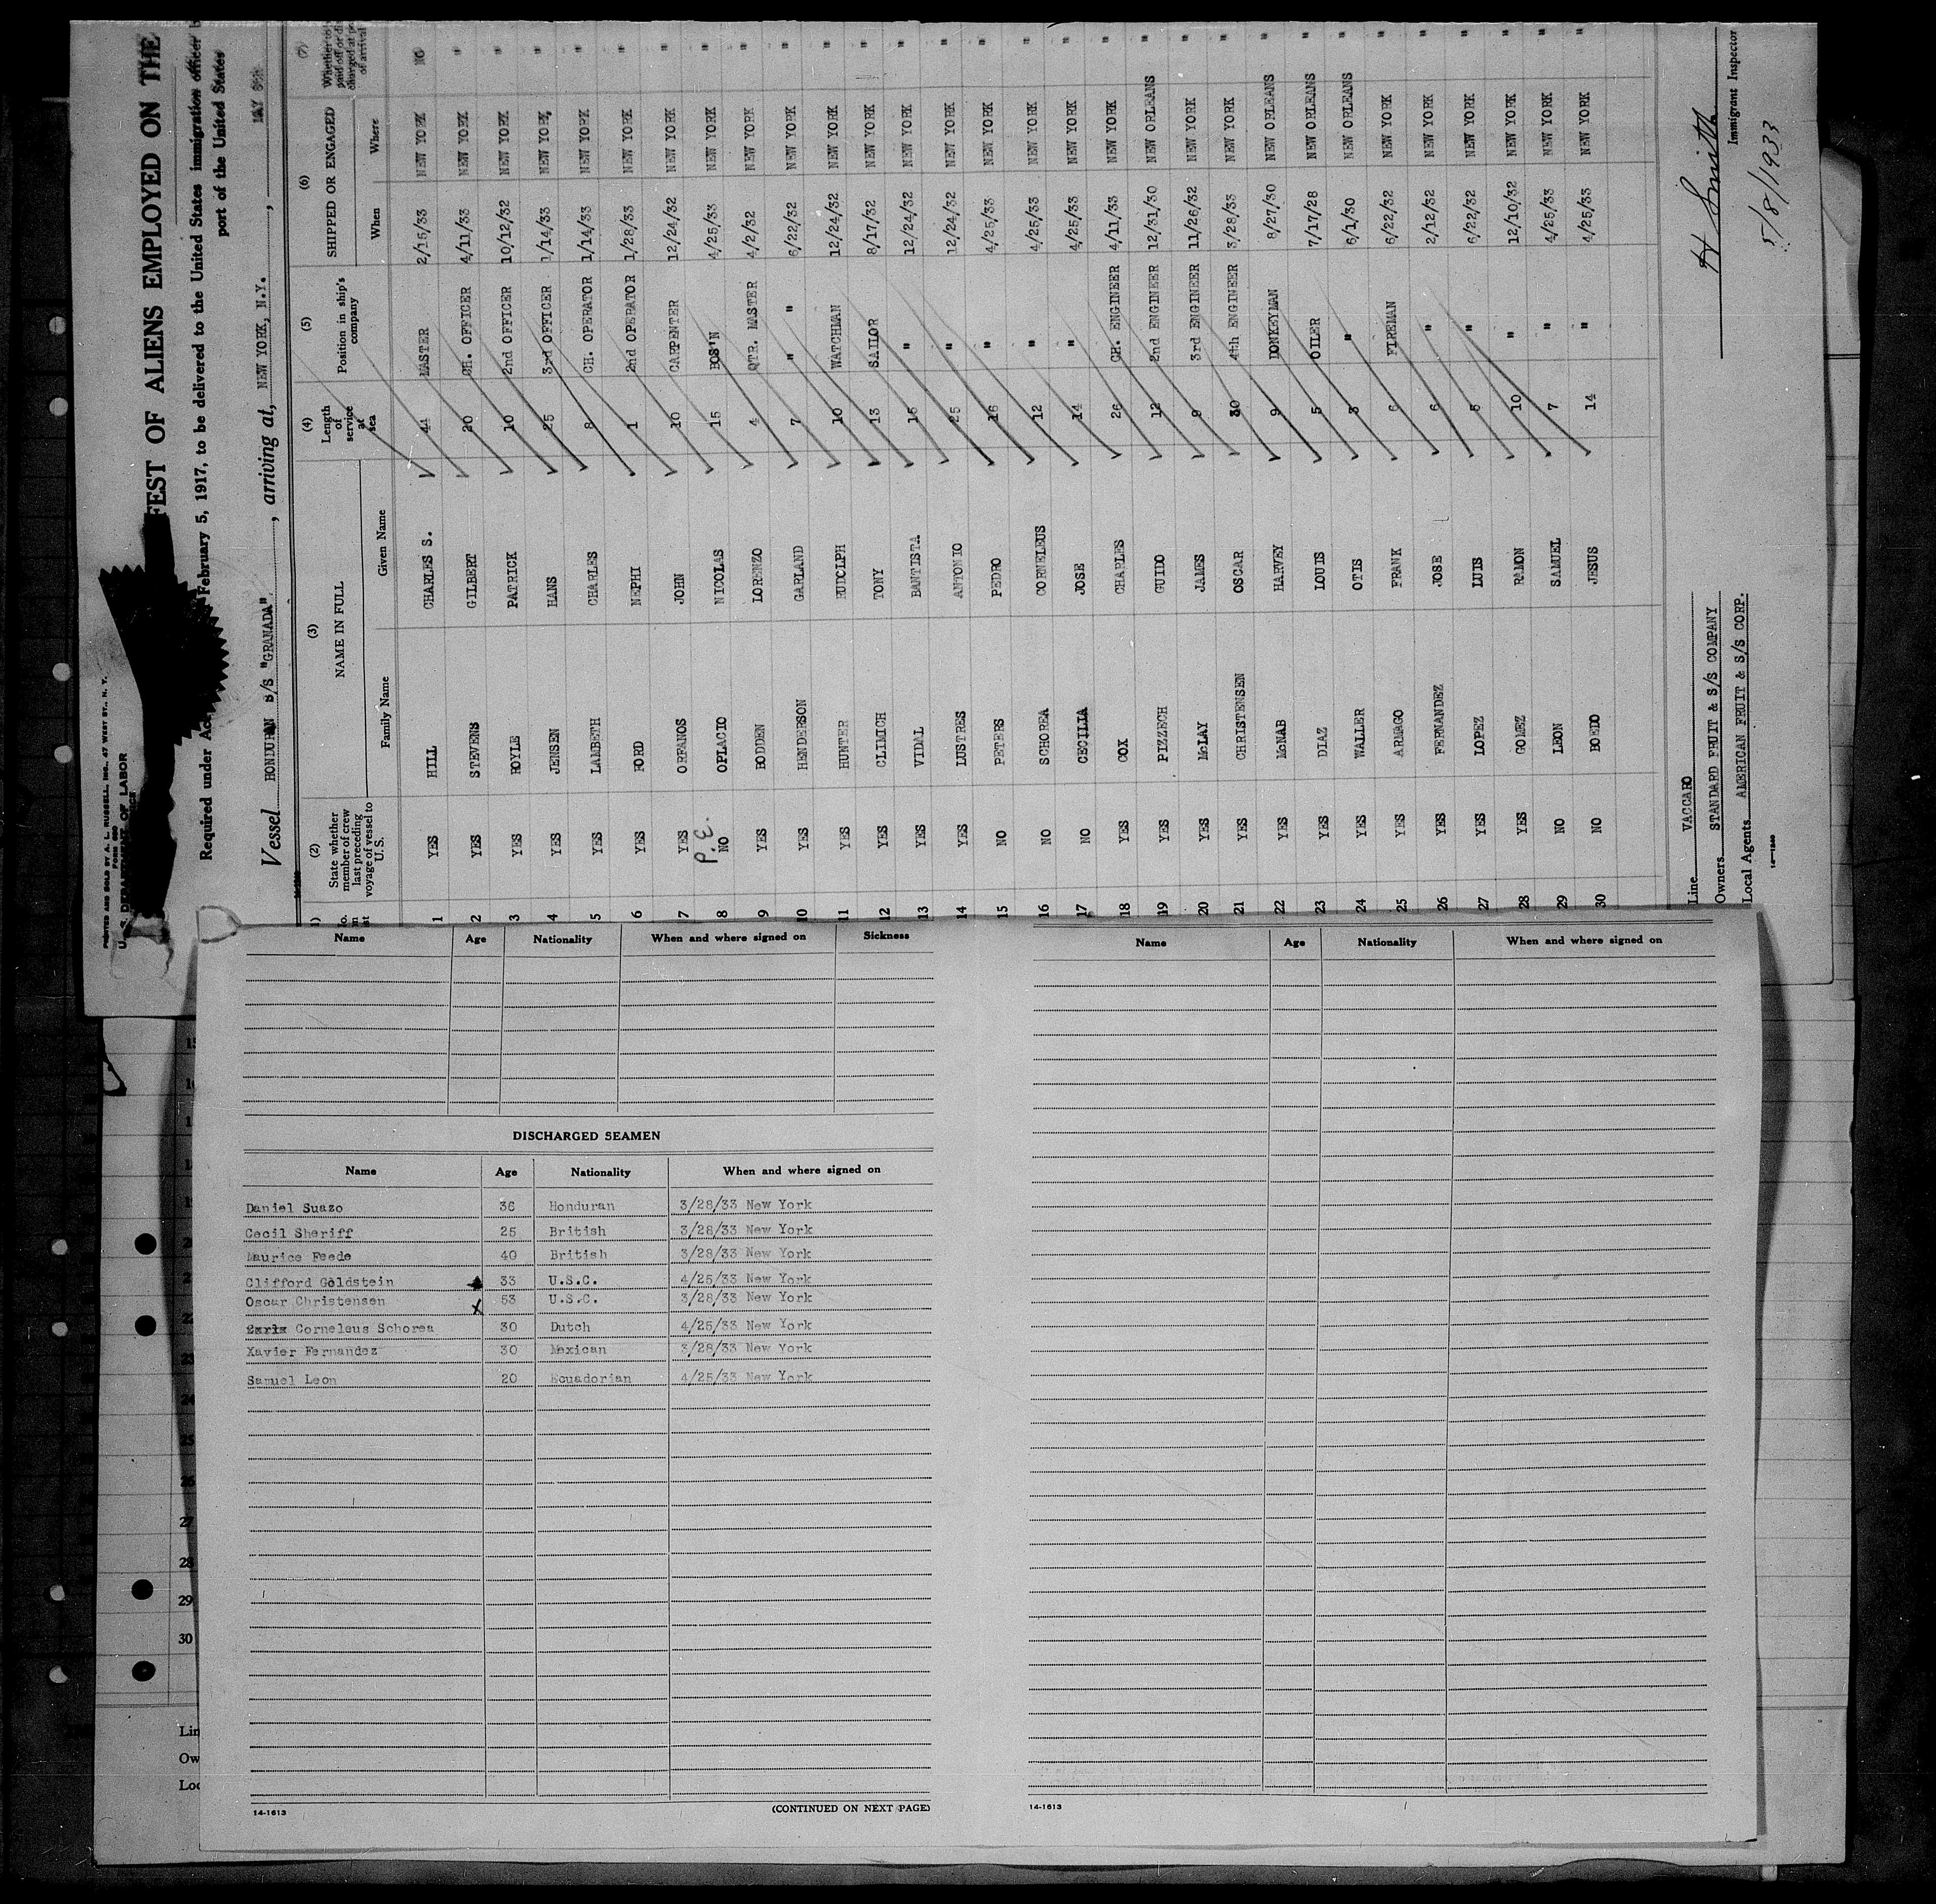 PRINTED AND SOLD BY A. L. RUSSELL, Inc., 47 WEST ST., N. Y.
Form 680
U. S. DEPARTMENT OF LABOR
FEST OF ALIENS EMPLOYED ON THE
Required under Act February 5, 1917, to be delivered to the United States immigration officer
port of the United States
Vessel HONDURAN S/S "GRANADA", arriving at, NEW YORK, N.Y., MAY 8th
(2) (3) (4) (5) (6) (7)
State whether member of crew last preceding voyage of vessel to U. S. NAME IN FULL Length of service at sea Position in ship's company SHIPPED OR ENGAGED Whether to paid off or charged at of arrival
Family Name Given Name When Where
1 YES HILL CHARLES S. 44 MASTER 2/15/33 NEW YORK NO
2 YES STEVENS GILBERT 20 CH. OFFICER 4/11/33 NEW YORK "
3 YES HOYLE PATRICK 10 2nd OFFICER 10/12/32 NEW YORK "
4 YES JENSEN HANS 25 3rd OFFICER 1/14/33 NEW YORK "
5 YES LAMBETH CHARLES 8 CH. OPERATOR 1/14/33 NEW YORK "
6 YES FORD NEPHI 1 2nd OPERATOR 1/28/33 NEW YORK "
7 YES ORFANOS JOHN 10 CARPENTER 12/24/32 NEW YORK "
P.E.
8 NO OPLACIO NICOLAS 15 BOS'N 4/25/33 NEW YORK "
9 YES BODDEN LORENZO 4 QTR. MASTER 4/2/32 NEW YORK "
10 YES HENDERSON GARLAND 7 " " 6/22/32 NEW YORK "
11 YES HUNTER RUDOLPH 10 WATCHMAN 12/24/32 NEW YORK "
12 YES CLIMICH TONY 13 SAILOR 8/17/32 NEW YORK "
13 YES VIDAL BANTISTA 15 " 12/24/32 NEW YORK "
14 YES LUSTRES ANTONIO 25 " 12/24/32 NEW YORK "
15 NO PETERS PEDRO 16 " 4/25/33 NEW YORK "
16 NO SCHOREA CORNELEUS 12 " 4/25/33 NEW YORK "
17 NO CECILIA JOSE 14 " 4/25/33 NEW YORK "
18 YES COX CHARLES 26 CH. ENGINEER 4/11/33 NEW YORK "
19 YES PIZZECH GUIDO 12 2nd ENGINEER 12/31/30 NEW ORLEANS "
20 YES McLAY JAMES 9 3rd ENGINEER 11/26/32 NEW YORK "
21 YES CHRISTENSEN OSCAR 30 4th ENGINEER 3/28/33 NEW YORK "
22 YES McNAB HARVEY 9 DONKEYMAN 8/27/30 NEW ORLEANS "
23 YES DIAZ LOUIS 5 OILER 7/17/28 NEW ORLEANS "
24 YES WALLER OTIS 3 " 6/1/30 NEW ORLEANS "
25 YES ARMAGO FRANK 6 FIREMAN 6/22/32 NEW YORK "
26 YES FERNANDEZ JOSE 6 " 2/12/32 NEW YORK "
27 YES LOPEZ LUIS 5 " 6/22/32 NEW YORK "
28 YES GOMEZ RAMON 10 " 12/10/32 NEW YORK "
29 NO LEON SAMUEL 7 " 4/25/33 NEW YORK "
30 NO BOEDO JESUS 14 " 4/25/33 NEW YORK "
Line VACCARO
Owners STANDARD FRUIT & S/S COMPANY
Local Agents AMERICAN FRUIT & S/S CORP.
H Smith
Immigrant Inspector
5/8/1933
Name Age Nationality When and where signed on Sickness
DISCHARGED SEAMEN
Name Age Nationality When and where signed on
Daniel Suazo 36 Honduran 3/28/33 New York
Cecil Sheriff 25 British 3/28/33 New York
Maurice Feede 40 British 3/28/33 New York
Clifford Goldstein 33 U.S.C. 4/25/33 New York
Oscar Christensen x 53 U.S.C. 3/28/33 New York
Corneleus Schorea 30 Dutch 4/25/33 New York
Xavier Fernandez 30 Mexican 3/28/33 New York
Samuel Leon 20 Ecuadorian 4/25/33 New York
14-1613 (CONTINUED ON NEXT PAGE)
Name Age Nationality When and where signed on
14-1613
22
24
25
26
27
28
29
30
Lin
Ow
Loc